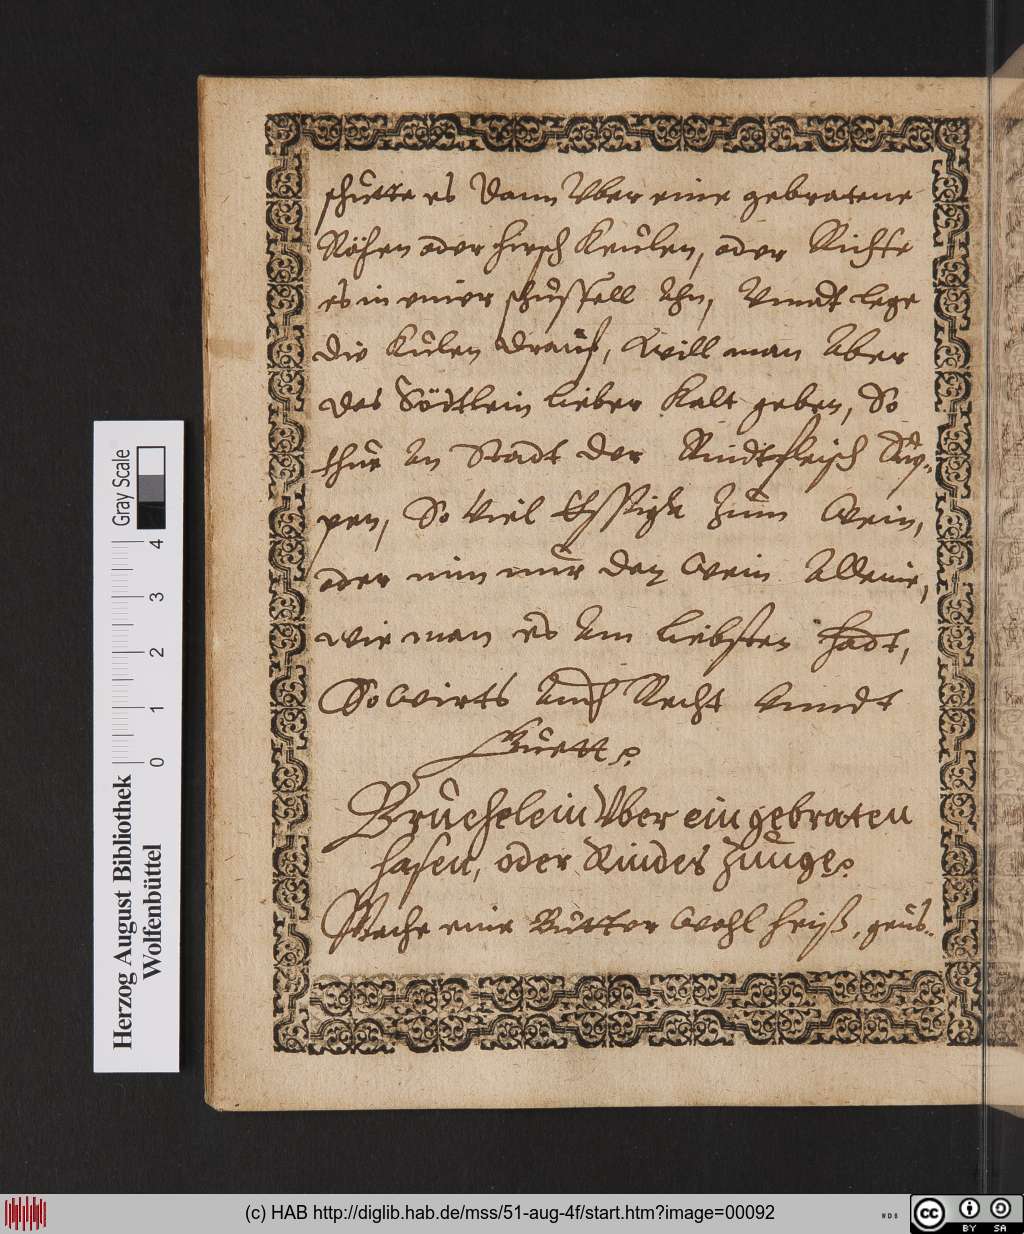 schuette es dann Vber eine gebratene
Röhen oder hirsch Keulen, oder Richte
es in einer schüssell Ahn, Vnndt lege
die Kulen drauf, Will man Aber
das Södtlein lieber Kalt geben, So
thue An Stadt der Rindtfleisch Sup„
pen, So Viel Essigk zum Wein,
oder nim nur den Wein Alleine,
wie man es Am liebsten hadt,
So wirts Auch Recht Vnndt
Guett
Brüehelein Vber ein gebraten
hasen, oder Rindes zunge
Mache eine Butter Wohl heiß, geus„
Gray Scale
4
3
2
1
0
Herzog August Bibliothek
Wolfenbüttel
(c) HAB http://diglib.hab.de/mss/51-aug-4f/start.htm?image=00092
WDB
cc
BY SA